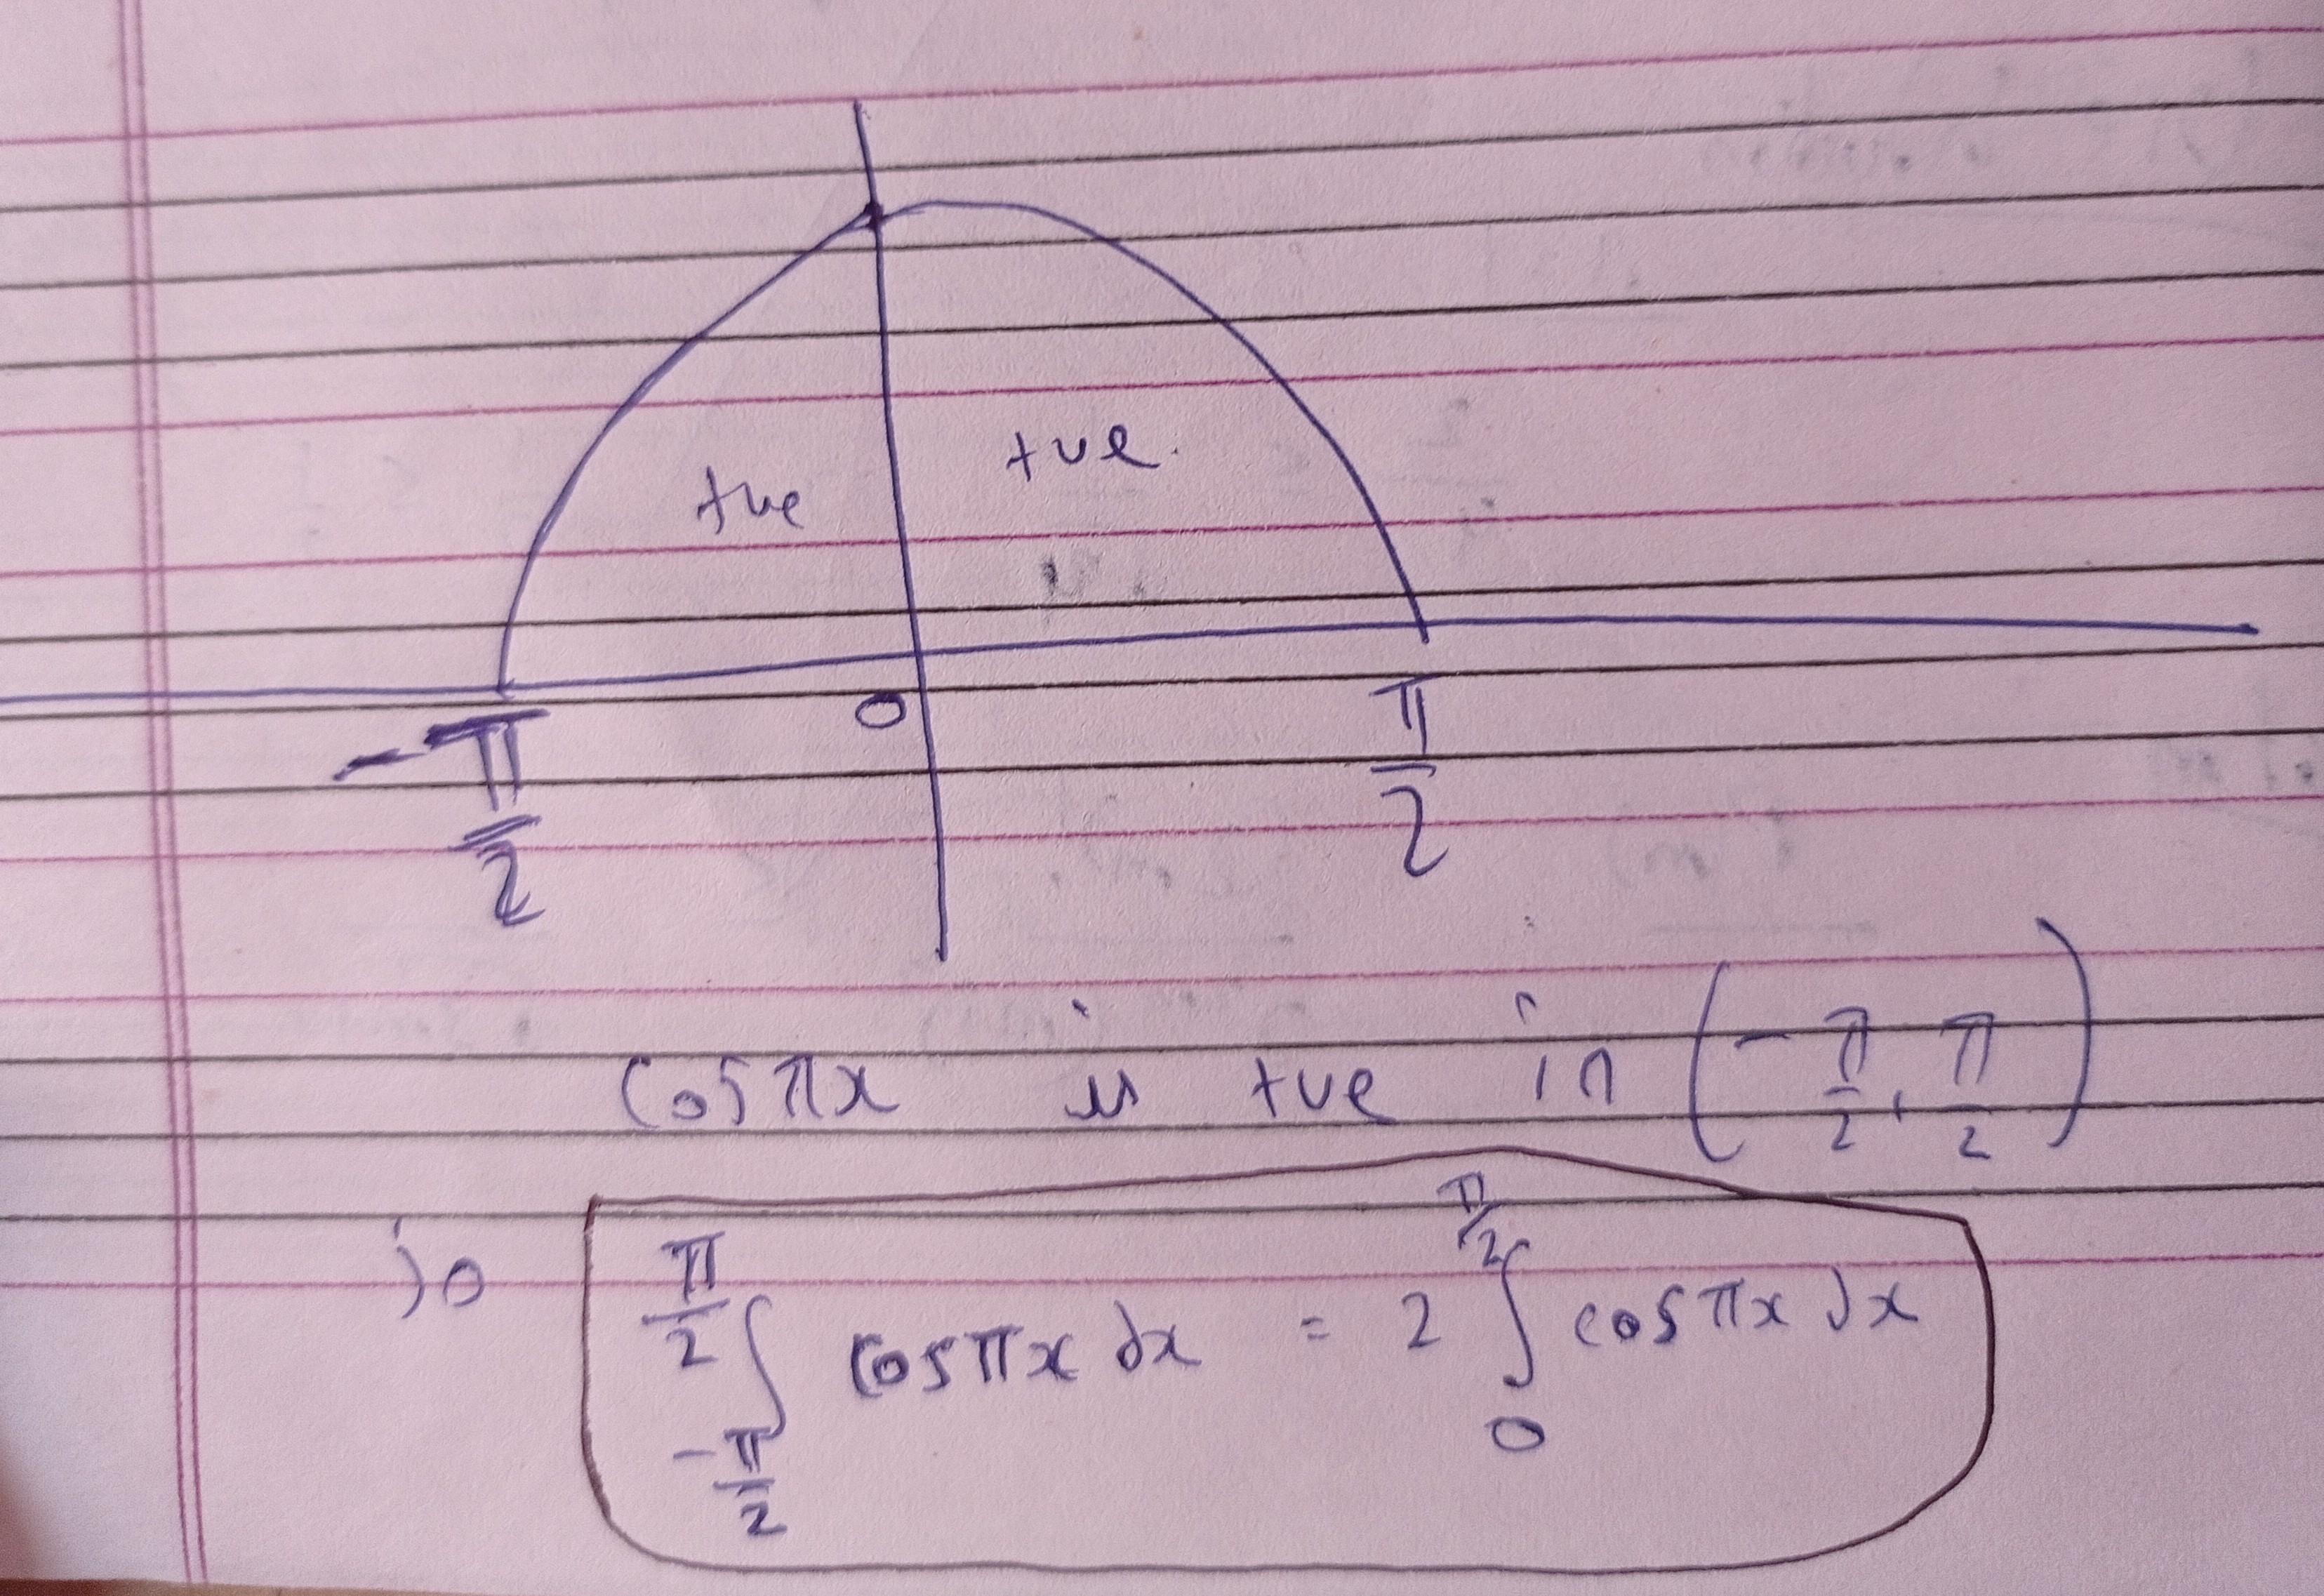 +ve +ve.
-π/2 0 π/2
cos πx is +ve in (-π/2, π/2)
so ∫_{-π/2}^{π/2} cos πx dx = 2 ∫_0^{π/2} cos πx dx